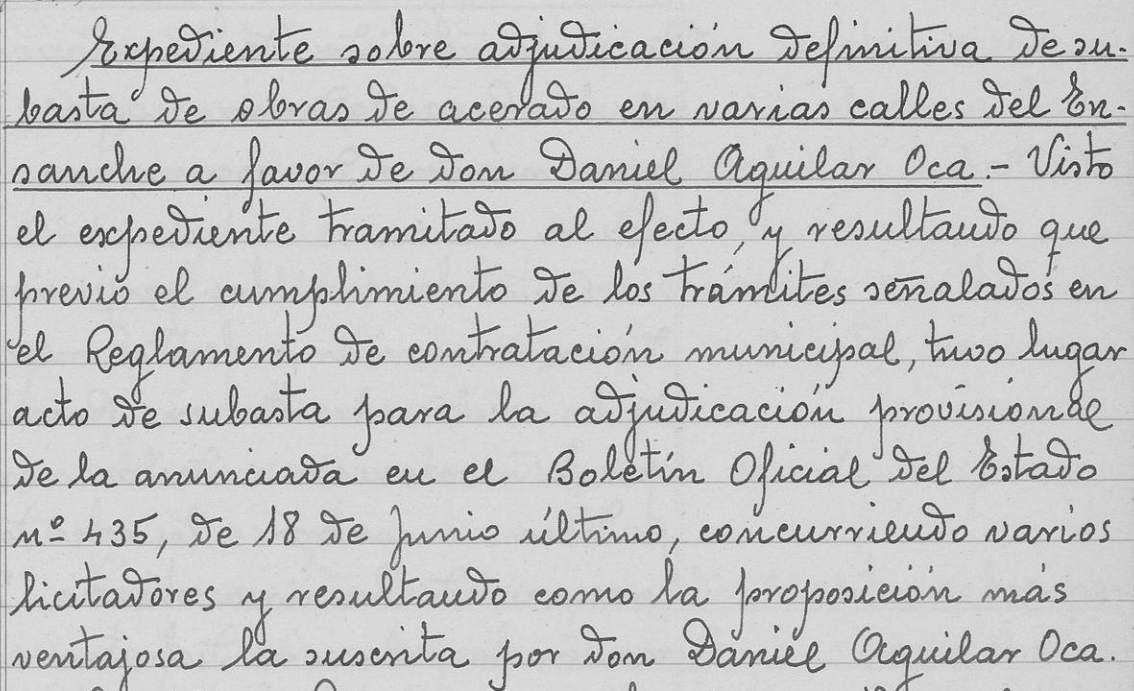 Expediente sobre adjudicación definitiva de su-
basta de obras de acerado en varias calles del En-
sanche a favor de don Daniel Aguilar Oca.- Visto
el expediente tramitado al efecto, y resultando que
previo el cumplimiento de los trámites señalados en
el Reglamento de contratación municipal, tuvo lugar
acto de subasta para la adjudicación provisional
de la anunciada en el Boletín Oficial del Estado
nº 435, de 18 de Junio último, concurriendo varios
licitadores y resultando como la proposición más
ventajosa la suscrita por don Daniel Aguilar Oca.